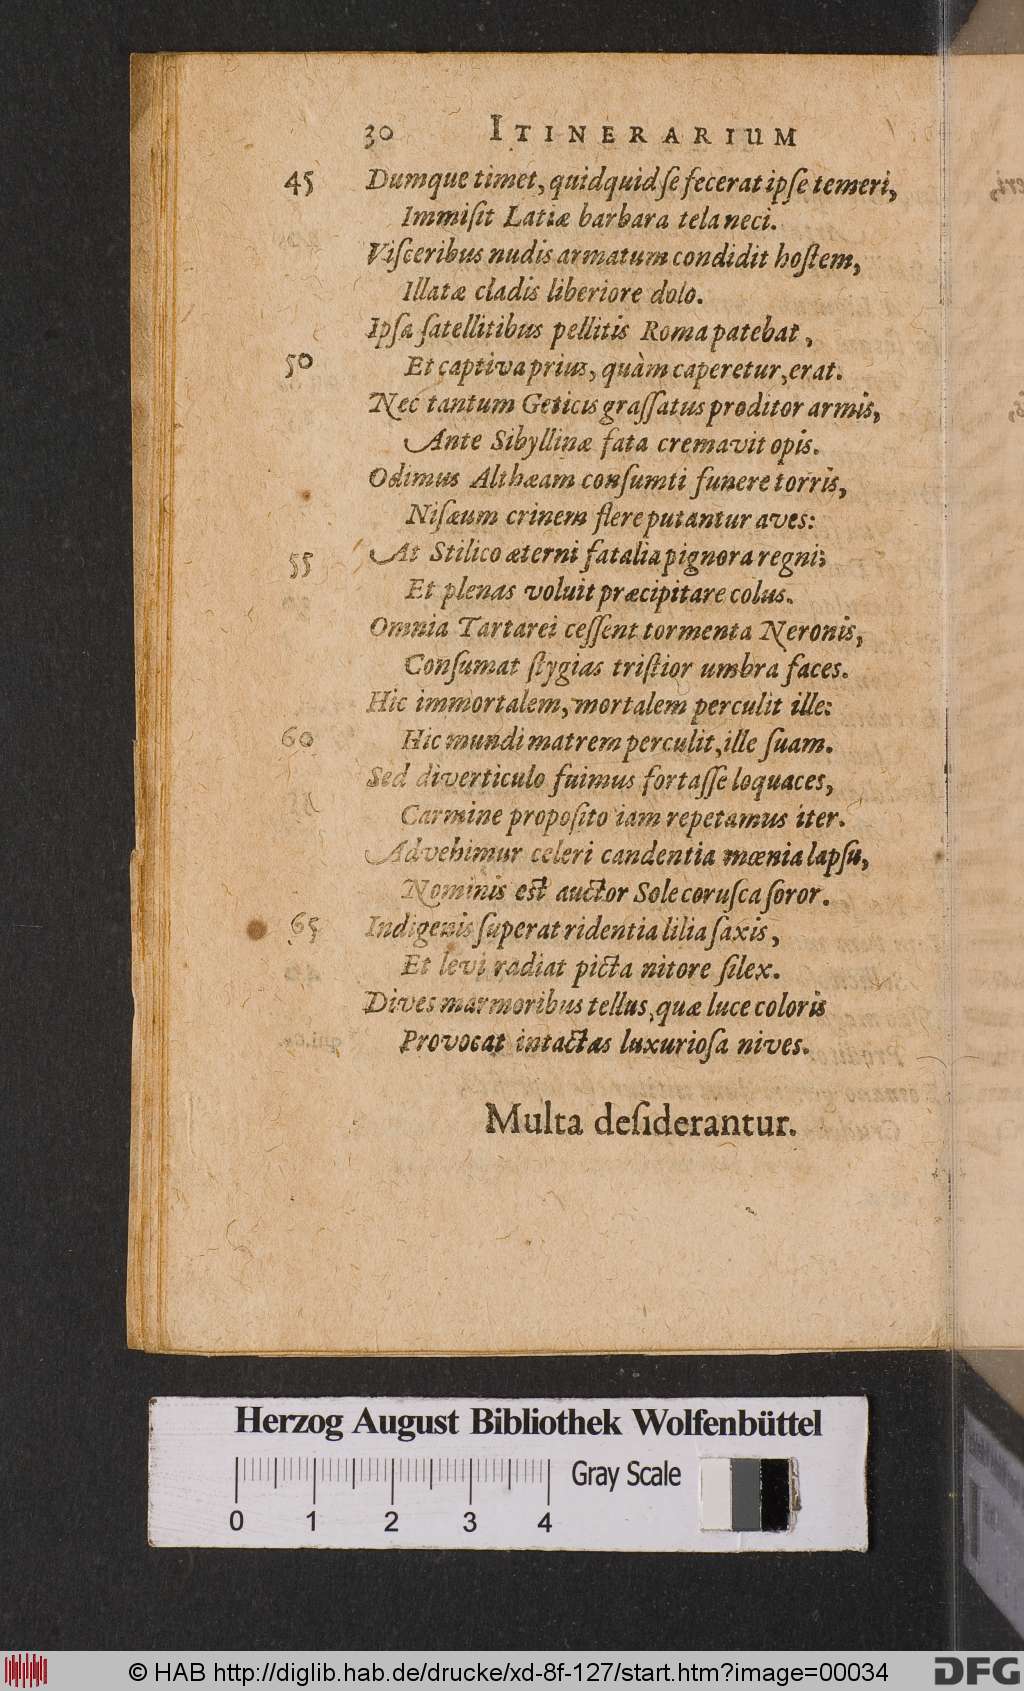 30 ITINERARIUM
45 Dumque timet, quidquid ſe fecerat ipſe temeri,
Immiſit Latiæ barbara tela neci.
Viſceribus nudis armatum condidit hoſtem,
Illatæ cladis liberiore dolo.
Ipſa ſatellitibus pellitis Roma patebat,
50 Et captiva prius, quàm caperetur, erat.
Nec tantum Geticis graſſatus proditor armis,
Ante Sibyllinæ fata cremavit opis.
Odimus Althæam conſumti funere torris,
Niſæum crinem flere putantur aves:
55 At Stilico æterni fatalia pignora regni;
Et plenas voluit præcipitare colus.
Omnia Tartarei ceſſent tormenta Neronis,
Conſumat ſtygias triſtior umbra faces.
Hic immortalem, mortalem perculit ille:
60 Hic mundi matrem perculit, ille ſuam.
Sed diverticulo fuimus fortaſſe loquaces,
Carmine propoſito iam repetamus iter.
Advehimur celeri candentia mœnia lapſu,
Nominis eſt auctor Sole coruſca ſoror.
65 Indigenis ſuperat ridentia lilia ſaxis,
Et levi radiat picta nitore ſilex.
Dives marmoribus tellus, quæ luce coloris
Provocat intactas luxurioſa nives.
Multa deſiderantur.
Herzog August Bibliothek Wolfenbüttel
Gray Scale
0 1 2 3 4
© HAB http://diglib.hab.de/drucke/xd-8f-127/start.htm?image=00034
DFG